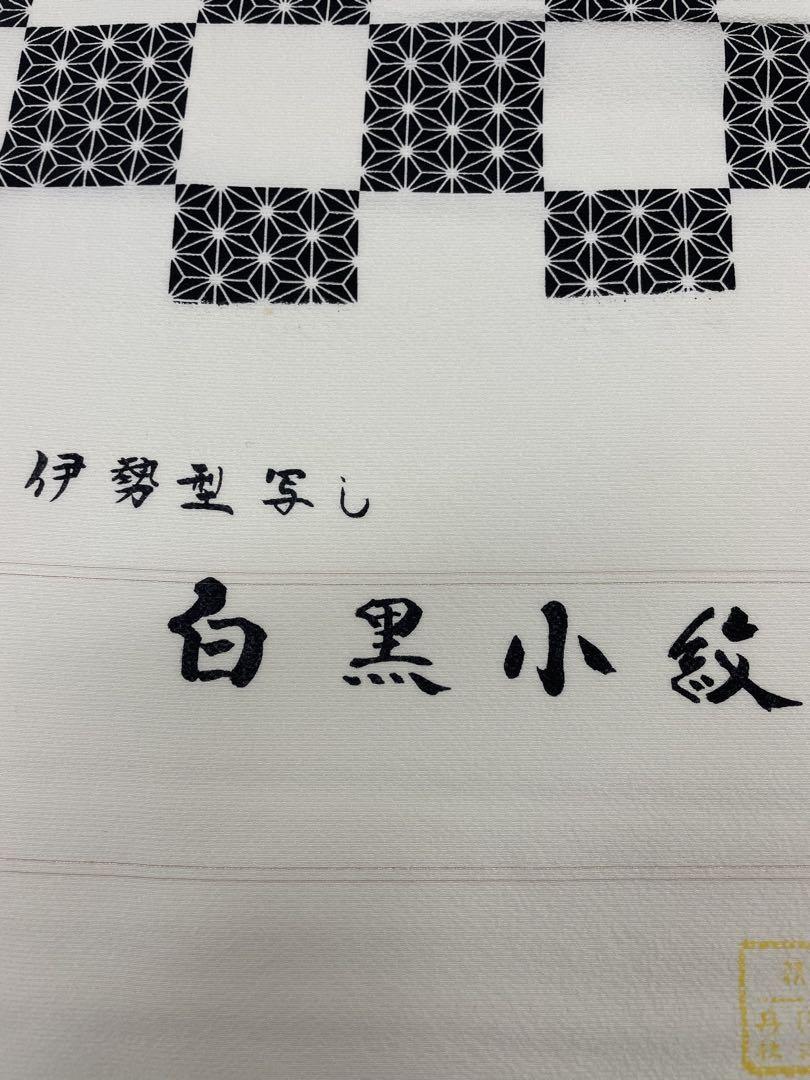 伊勢型写し
白黒小紋